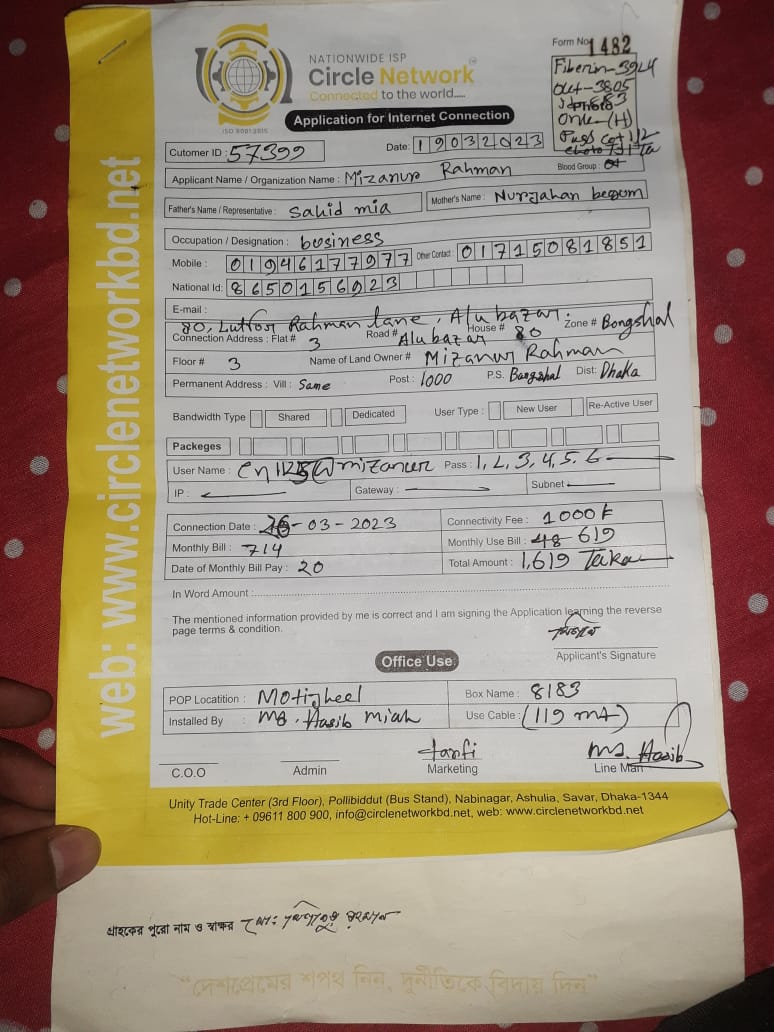 NATIONWIDE ISP
Circle Network
Connected to the world.....
ISO 9001:2015
Form No 1482
Fiberin-39L4
Out-3805
Onu-(H)
Application for Internet Connection
Cutomer ID : 57399
Date: 19032023
Applicant Name / Organization Name : Mizanur Rahman
Blood Group :
Father's Name / Representative : Sahid mia
Mother's Name : Nurjahan begum
Occupation / Designation : business
Mobile : 01946177977
Other Contact : 01715081851
National Id: 8650156923
E-mail :
80, Lutfor Rahman lane, Alu bazar.
Connection Address : Flat # 3 Road # Alu bazar House # 80 Zone # Bongshal
Floor # 3 Name of Land Owner # Mizanur Rahman
Permanent Address : Vill : Same Post : 1000 P.S. Bangshal Dist: Dhaka
Bandwidth Type Shared Dedicated User Type : New User Re-Active User
Packeges
User Name : @mizanur Pass : 1, 2, 3, 4, 5, 6
IP : Gateway : Subnet
Connection Date : -03-2023
Connectivity Fee : 1000
Monthly Bill : 714
Monthly Use Bill : 619
Date of Monthly Bill Pay : 20
Total Amount : 1,619 Taka
In Word Amount :
The mentioned information provided by me is correct and I am signing the Application learning the reverse
page terms & condition.
Applicant's Signature
Office Use
POP Locatition : Motijheel
Box Name : 8183
Installed By : Md. Hasib Miah
Use Cable : (119 mt)
C.O.O
Admin
tanfi
Marketing
Md. Hasib
Line Man
Unity Trade Center (3rd Floor), Pollibiddut (Bus Stand), Nabinagar, Ashulia, Savar, Dhaka-1344
Hot-Line: + 09611 800 900, info@circlenetworkbd.net, web: www.circlenetworkbd.net
web: www.circlenetworkbd.net
গ্রাহকের পুরো নাম ও স্বাক্ষর মোঃ মিজানুর রহমান
“দেশপ্রেমের শপথ নিন, দুর্নীতিকে বিদায় দিন”